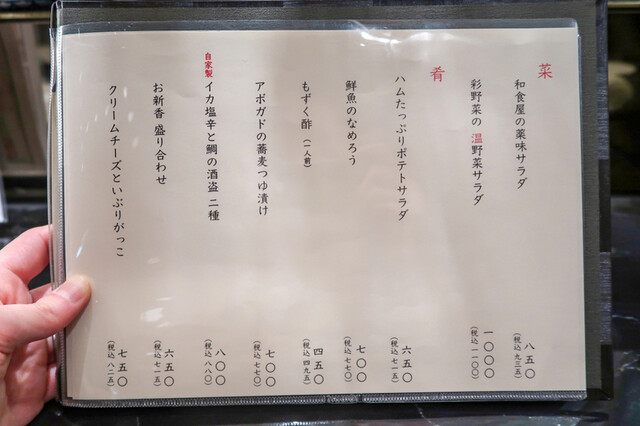 菜
和食屋の薬味サラダ
八五〇
(税込 九三五)
彩野菜の 温野菜サラダ
一〇〇〇
(税込 一一〇〇)
肴
ハムたっぷりポテトサラダ
六五〇
(税込 七一五)
鮮魚のなめろう
七〇〇
(税込 七七〇)
もずく酢 (一人前)
四五〇
(税込 四九五)
アボガドの蕎麦つゆ漬け
七〇〇
(税込 七七〇)
自家製 イカ塩辛と鯛の酒盗 二種
八〇〇
(税込 八八〇)
お新香 盛り合わせ
六五〇
(税込 七一五)
クリームチーズといぶりがっこ
七五〇
(税込 八二五)